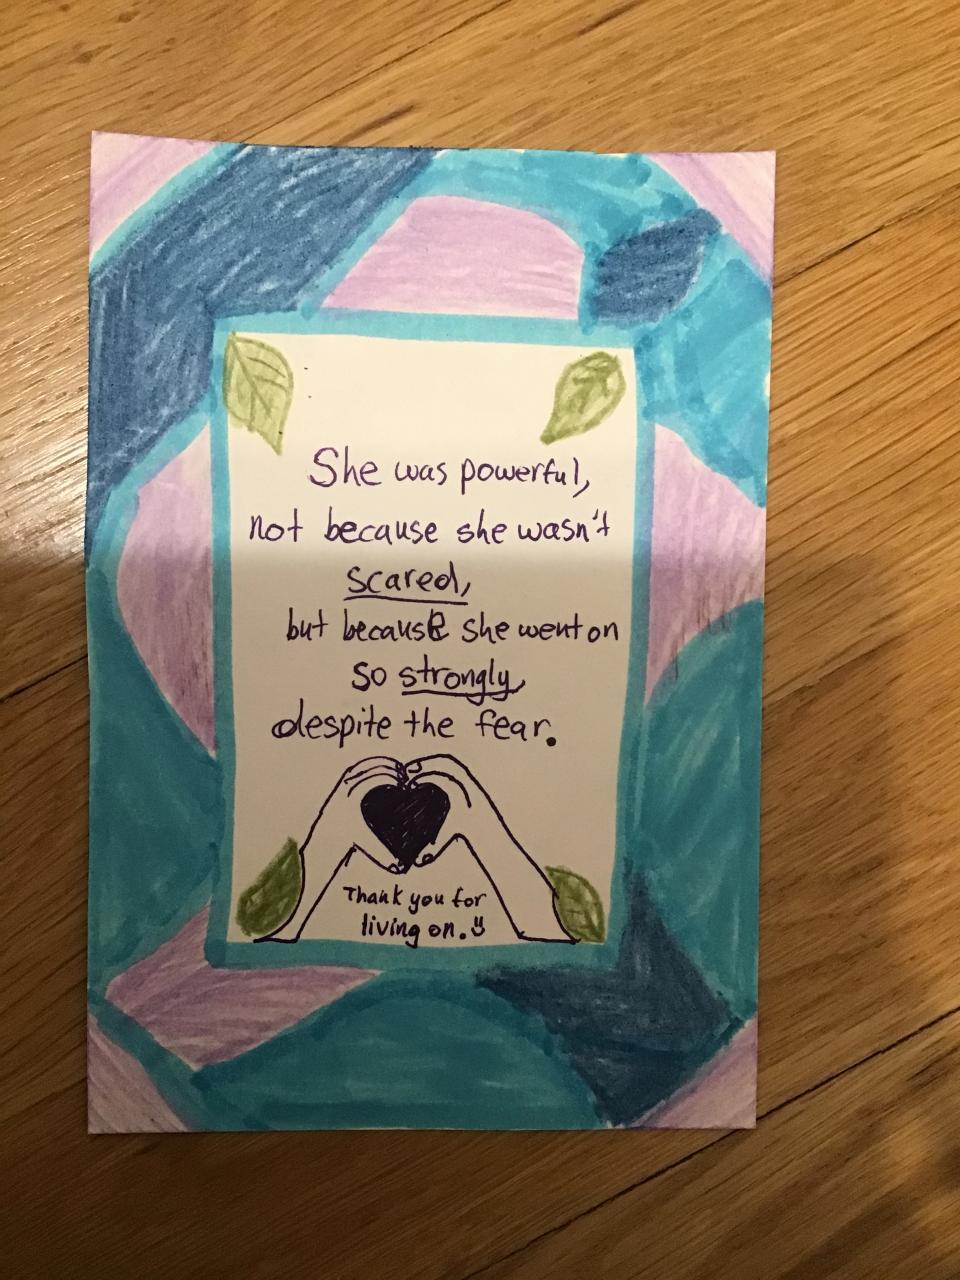 She was powerful,
not because she wasn't
scared,
but because she went on
so strongly,
despite the fear.
Thank you for
living on.